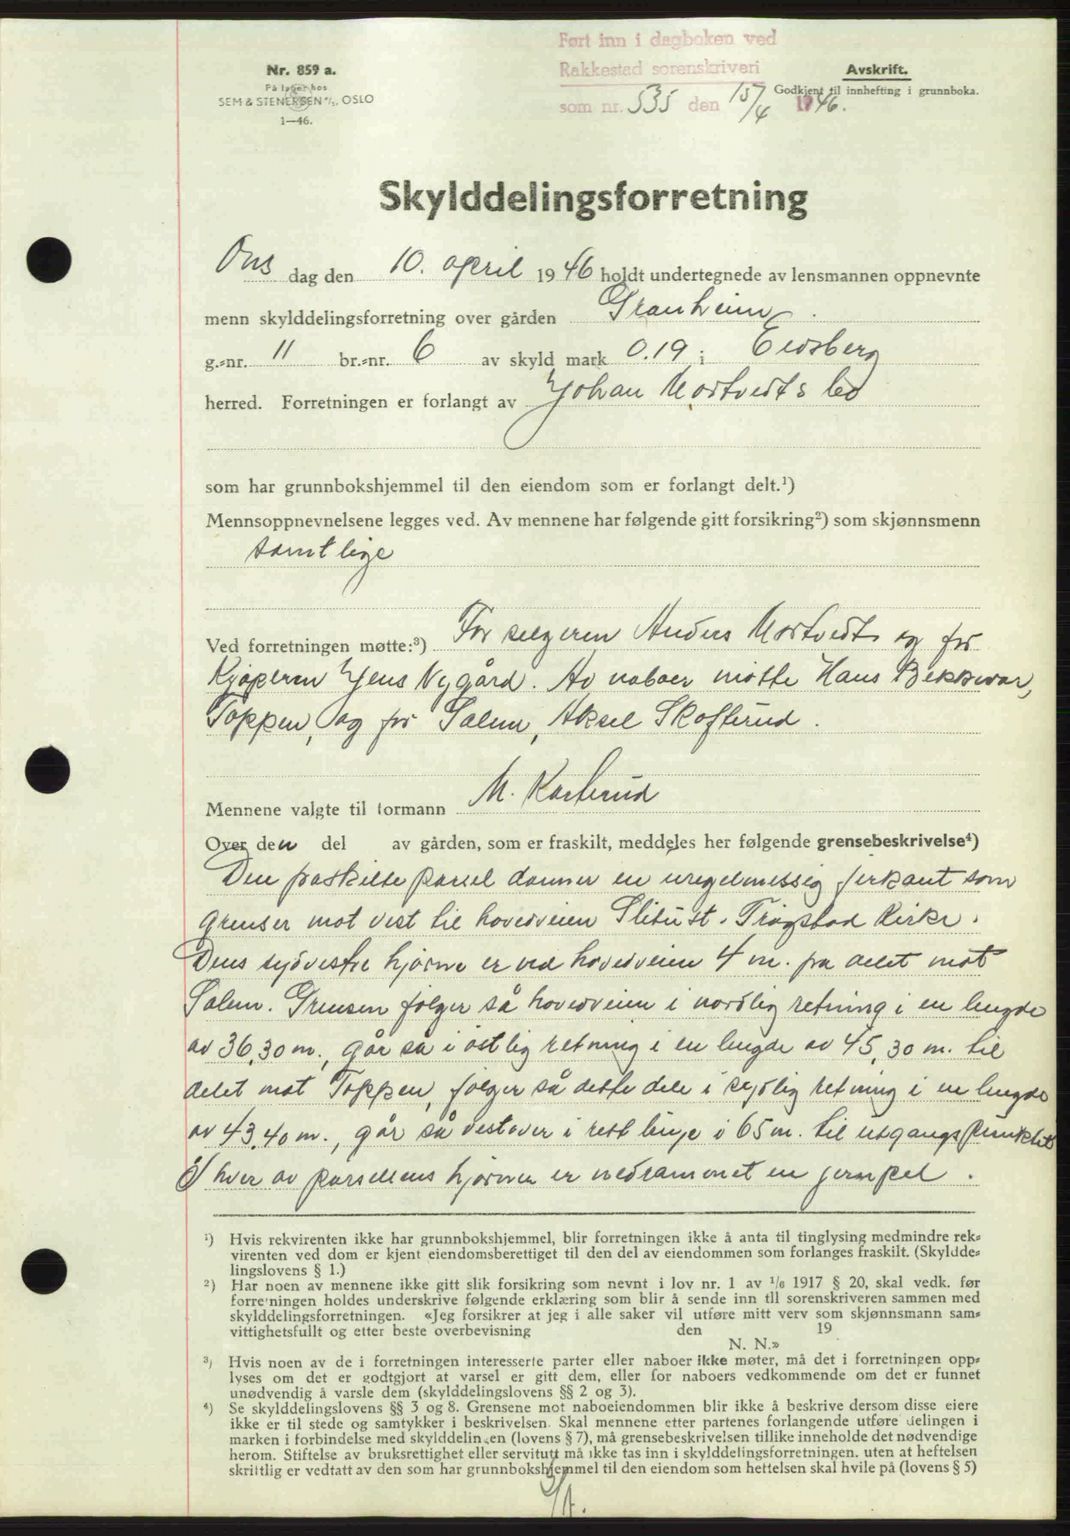 Ført inn i dagboken ved
Rakkestad sorenskriveri
som nr. 535 den 15/4 1946.
Nr. 859 a.
På lager hos
SEM & STENERSEN A/S, OSLO
1—46.
Avskrift.
Godkjent til innhefting i grunnboka.
Skylddelingsforretning
Ons dag den 10. april 1946 holdt undertegnede av lensmannen oppnevnte
menn skylddelingsforretning over gården Granheim.
g.-nr. 11 br.-nr. 6 av skyld mark 0.19 i Eidsberg
herred. Forretningen er forlangt av Johan Mortvedts bo
som har grunnbokshjemmel til den eiendom som er forlangt delt.¹)
Mennsoppnevnelsene legges ved. Av mennene har følgende gitt forsikring²) som skjønnsmenn
samtlige
Ved forretningen møtte:³) For selgeren Anders Mortvedt og for
Kjøperen Jens Nygård. Av naboer møtte Hans Bekkevar,
Toppen, og for Salem, Aksel Skofterud.
Mennene valgte til formann M. Karterud
Over den del av gården, som er fraskilt, meddeles her følgende grensebeskrivelse⁴)
Den fraskilte parsel danner en uregelmessig firkant som
grenser mot vest til hovedveien Slitust - Trøgstad Kirke.
Dens sydvestre hjørne er ved hovedveien 4 m. fra delet mot
Salem. Grensen følger så hovedveien i nordlig retning i en lengde
av 36,30 m., går så i østlig retning i en lengde av 45,30 m. til
delet mot Toppen, følger så dette dele i sydlig retning i en lengde
av 43,40 m., går så vestover i rett linje i 65 m. til utgangspunktet
I hver av parsellens hjørner er nedrammet en jernpel.
¹) Hvis rekvirenten ikke har grunnbokshjemmel, blir forretningen ikke å anta til tinglysing medmindre rek-
virenten ved dom er kjent eiendomsberettiget til den del av eiendommen som forlanges fraskilt. (Skyldde-
lingslovens § 1.)
²) Har noen av mennene ikke gitt slik forsikring som nevnt i lov nr. 1 av 1/6 1917 § 20, skal vedk. før
forretningen holdes underskrive følgende erklæring som blir å sende inn til sorenskriveren sammen med
skylddelingsforretningen. «Jeg forsikrer at jeg i alle saker vil utføre mitt verv som skjønnsmann sam-
vittighetsfullt og etter beste overbevisning den 19
N. N.»
³) Hvis noen av de i forretningen interesserte parter eller naboer ikke møter, må det i forretningen opp-
lyses om det er godtgjort at varsel er gitt dem, eller for naboers vedkommende om det er funnet
unødvendig å varsle dem (skylddelingslovens §§ 2 og 3).
⁴) Se skylddelingslovens §§ 3 og 8. Grensene mot naboeiendommen blir ikke å beskrive dersom disse eiere
ikke er til stede og samtykker i beskrivelsen. Skal mennene etter partenes forlangende utføre delingen i
marken i forbindelse med skylddelingen (lovens § 7), må grensebeskrivelsen tillike inneholde det nødvendige
herom. Stiftelse av bruksrettighet eller servitutt må ikke tas inn i skylddelingsforretningen, uten at heftelsen
skriftlig er vedtatt av den som har grunnbokshjemmel til den eiendom som heftelsen skal hvile på (lovens § 5)